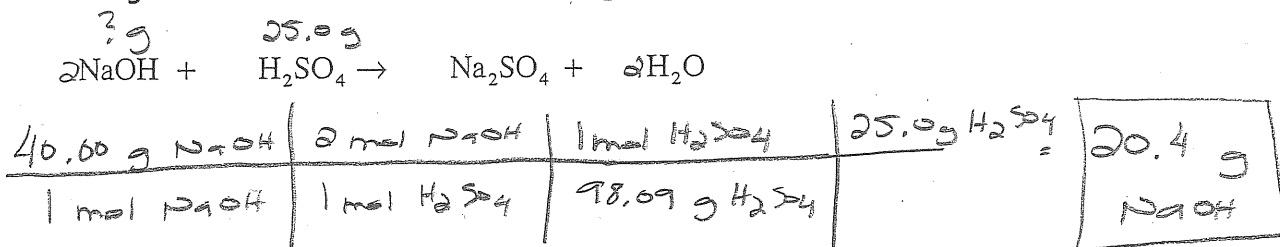 ? g 25.0 g
2NaOH + H₂SO₄ → Na₂SO₄ + 2H₂O
40.00 g NaOH | 2 mol NaOH | 1 mol H₂SO₄ | 25.0g H₂SO₄ = 20.4 g
1 mol NaOH | 1 mol H₂SO₄ | 98.09 g H₂SO₄ NaOH